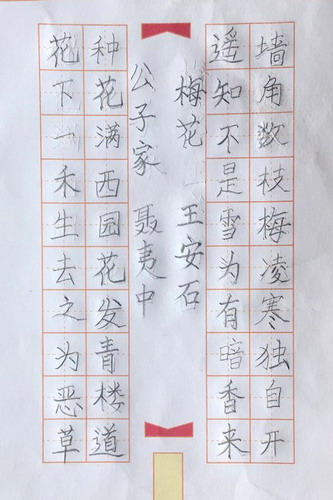 墙角数枝梅凌寒独自开
遥知不是雪为有暗香来
梅花 王安石
公子家 聂夷中
种花满西园花发青楼道
花下一禾生去之为恶草